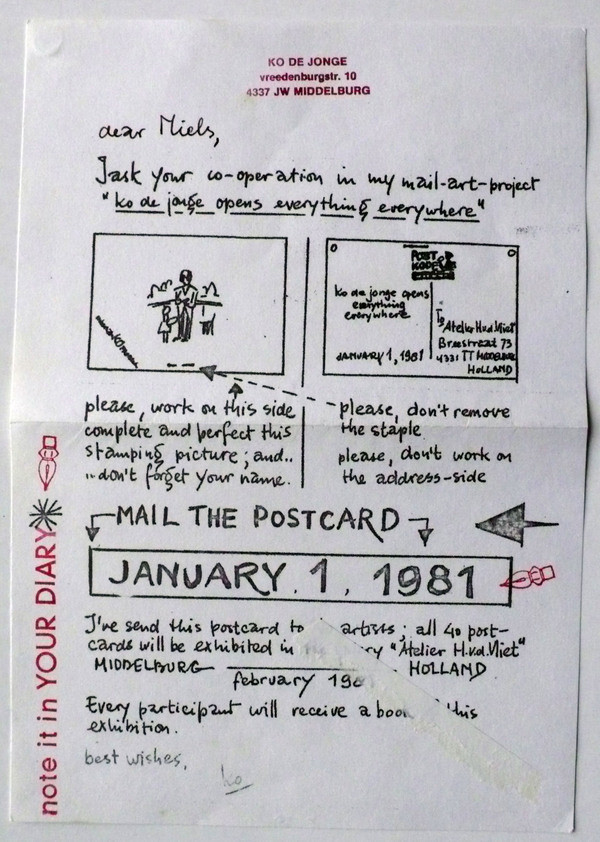 KO DE JONGE
vreedenburgstr. 10
4337 JW MIDDELBURG
dear Niels,
I ask your co-operation in my mail-art-project
"ko de jonge opens everything everywhere"
POST
KODE
ko de jonge opens
everything
everywhere
JANUARY 1, 1981
To
Atelier H.v.d.Vliet
Breestraat 73
4331 TT MIDDELBURG
HOLLAND
please, work on this side
complete and perfect this
stamping picture; and..
..don't forget your name.
please, don't remove
the staple
please, don't work on
the address-side
MAIL THE POSTCARD
JANUARY. 1, 1981
note it in YOUR DIARY
I've send this postcard to artists; all 40 post-
cards will be exhibited in "Atelier H.v.d.Vliet"
MIDDELBURG HOLLAND
february
Every participant will receive a this
exhibition.
best wishes,
ko